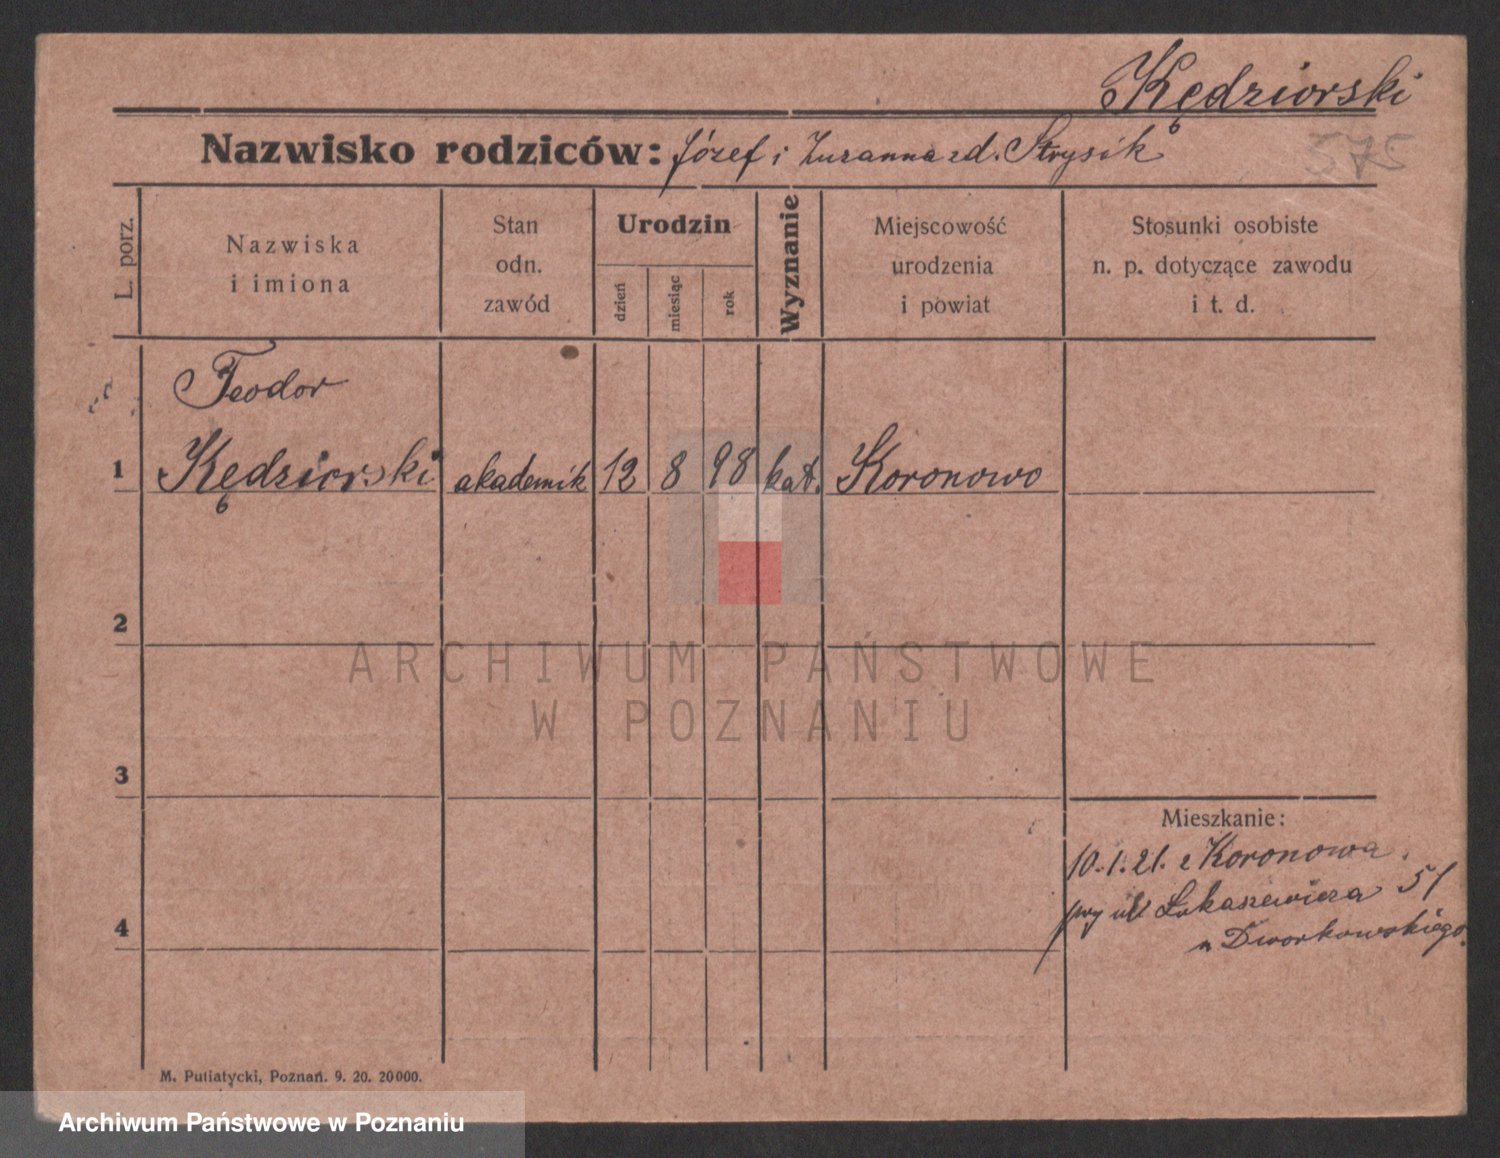 Kędziorski
Nazwisko rodziców: Józef i Zuzanna zd. Strysik
575
L. porz.
Nazwiska
i imiona
Stan
odn.
zawód
Urodzin
dzień
miesiąc
rok
Wyznanie
Miejscowość
urodzenia
i powiat
Stosunki osobiste
n. p. dotyczące zawodu
i t. d.
Teodor
1 Kędziorski akademik 12 8 98 kat. Koronowo
2
ARCHIWUM PAŃSTWOWE
W POZNANIU
3
Mieszkanie:
10.1.21. z Koronowa
przy ul Łukaszewicza 51
4
u Dworkowskiego.
M. Putiatycki, Poznań. 9. 20. 20000.
Archiwum Państwowe w Poznaniu